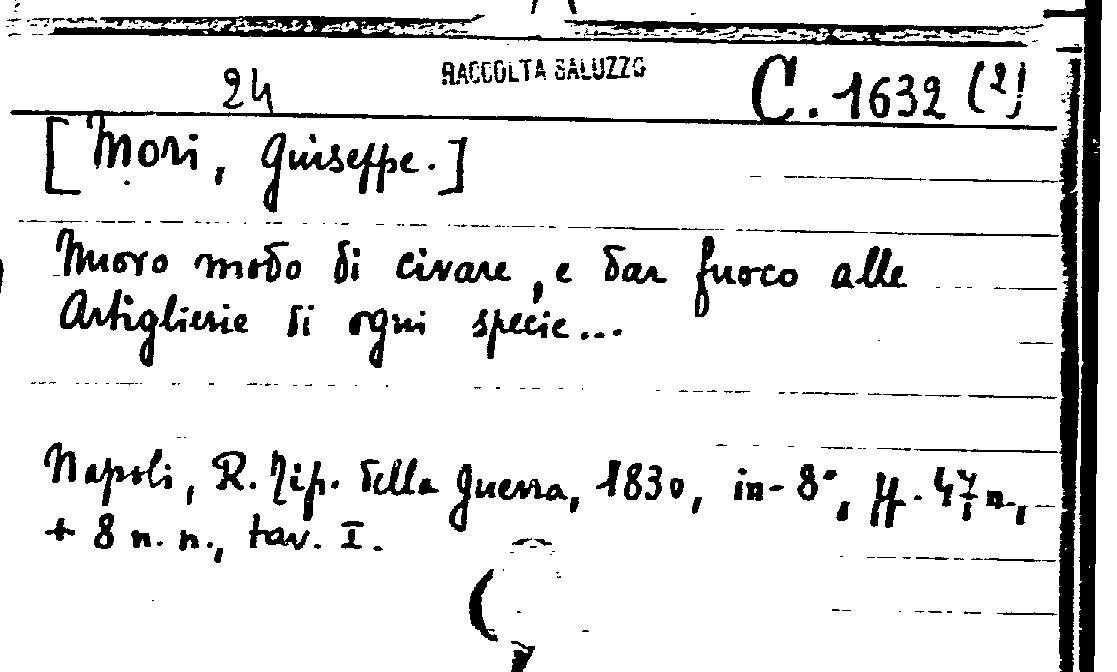 RACCOLTA SALUZZO
24 C. 1632 (2)
[Mori, Giuseppe.]
Nuovo modo di civare, e dar fuoco alle
Artiglierie di ogni specie...
Napoli, R. Tip. della Guerra, 1830, in-8°, ff. 47 n.,
+ 8 n. n., tav. I.